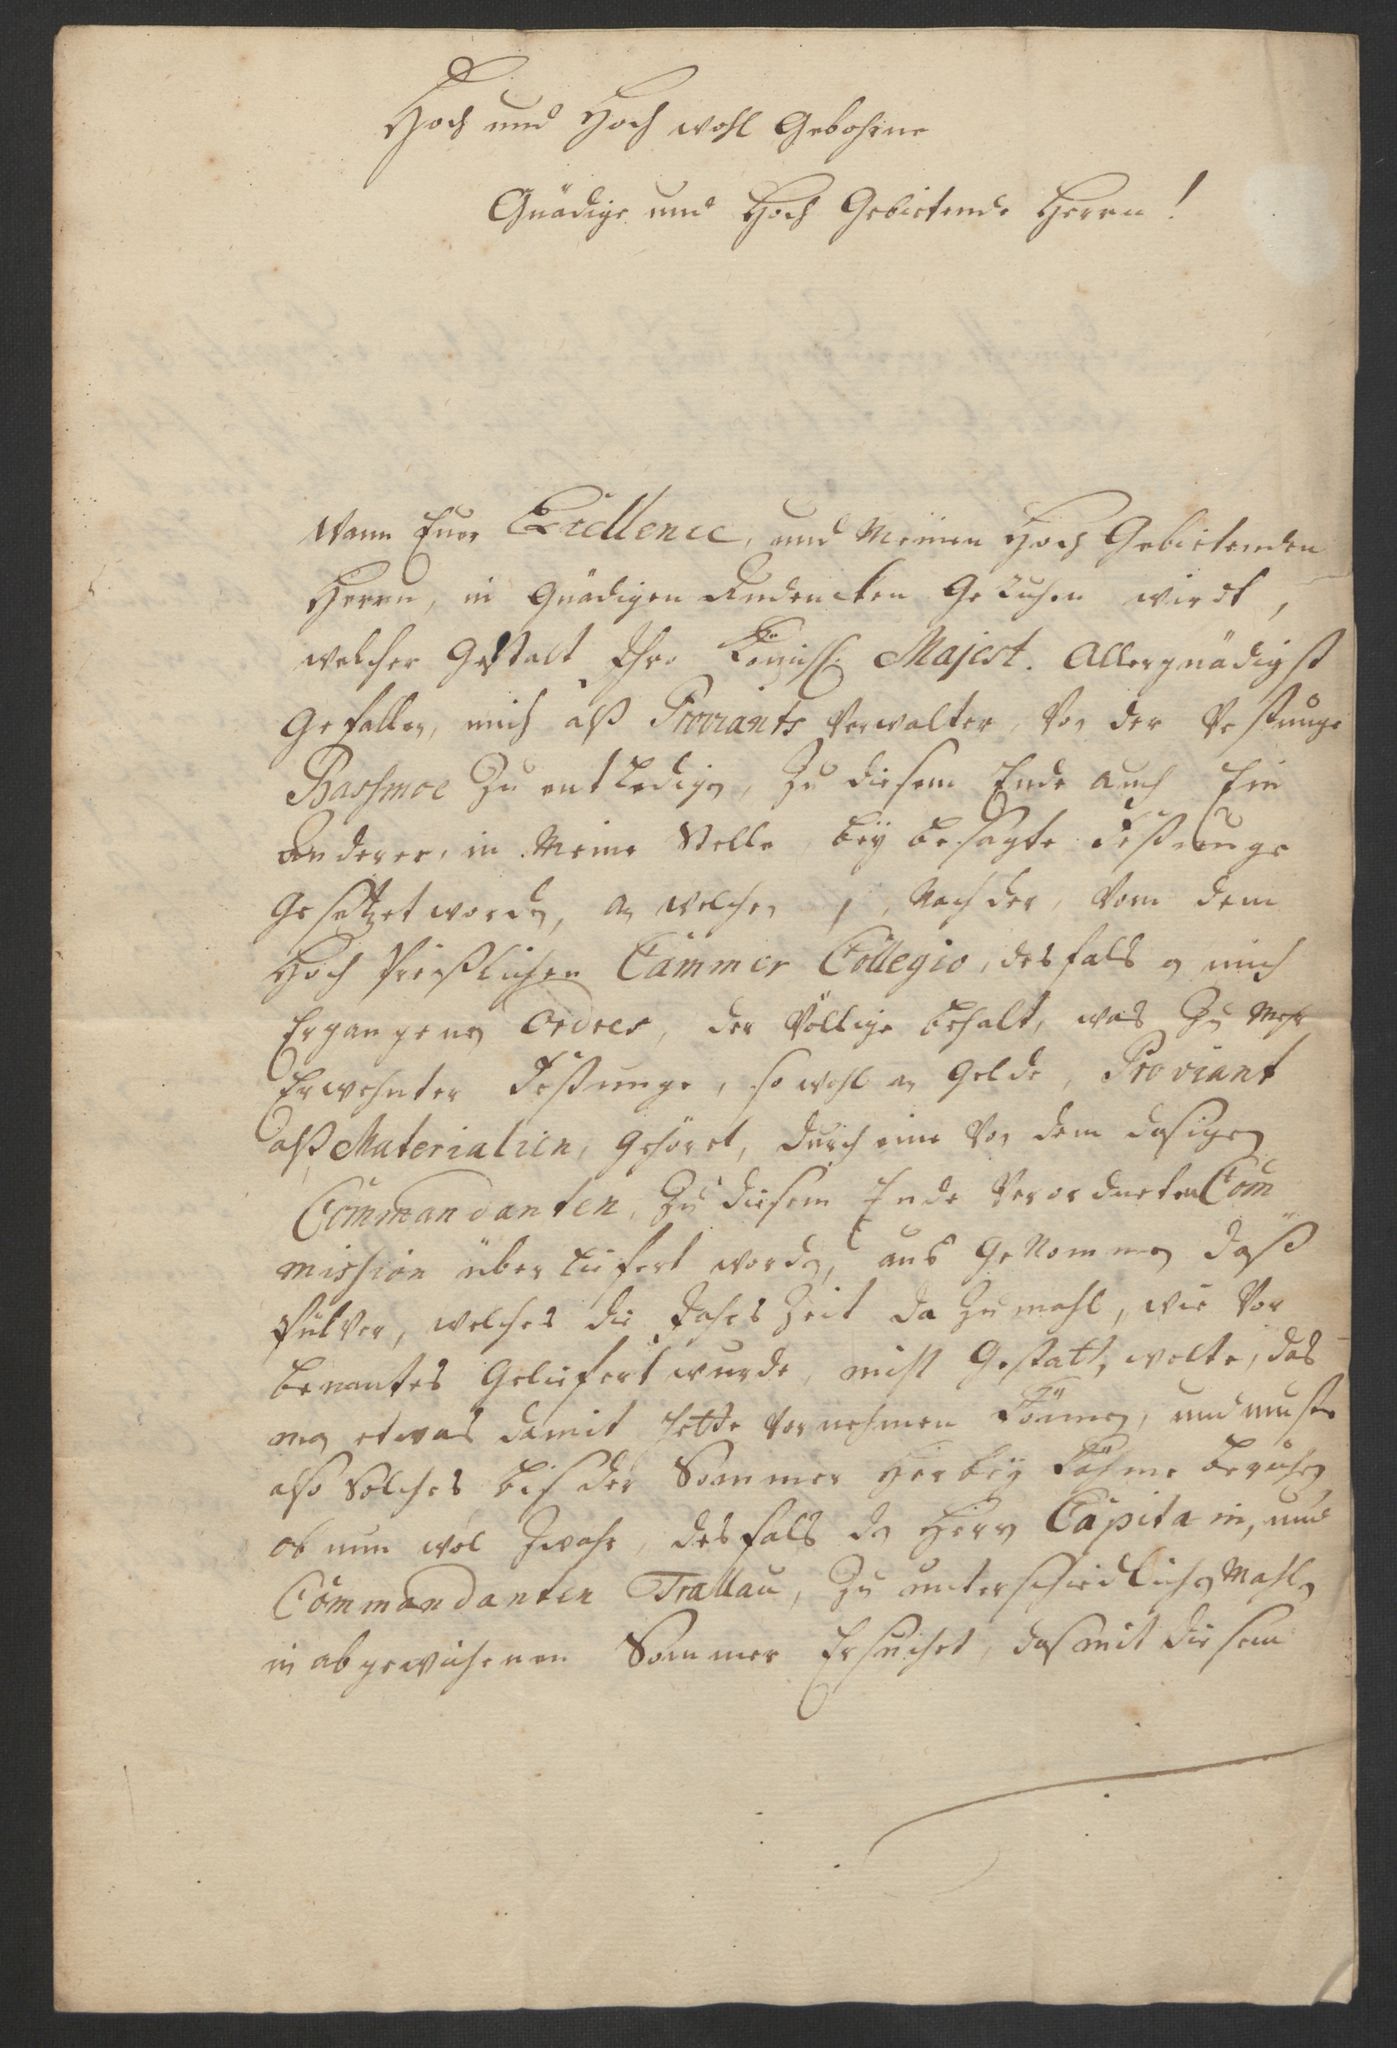 Hoch und Hoch wohl Gebohrne
Gnädige und Hoch Gebietende Herren!
Wann Euer Excellence, und Meinen Hoch Gebietenden
Herren, in Gnädigen Andencken Geruhen wirdt,
welcher Gestalt Ihro Königl. Majest. Allergnädigst
Gefallen, mich alß Proviants Verwalter, von der Vestunge
Bassmoe zu entledigen, zu diesem Ende auch Ein
Anderer, in Meine Stelle, beÿ besagte Festunge
Gesetzet worden, an welchen, Nach der, Vom dem
Hoch Preißlichen Cammer Collegio, desfals an mich
Ergangenen Ordres, der Völlige behalt, was zu Mehr
Erwehnter Festunge, so wohl an Gelde, Proviant
alß Materialien, Gehöret, durch eine von dem dasigen
Commandanten, zu diesem Ende Verordneten Com
mission überliefert worden, aus Genommen daß
Pulver, welches die Jahrs Zeit da zumahl, wie vor
benantes Geliefert wurde, nicht Gestatten wolte, das
man etwas damit hette vornehmen Können, und muste
also solches biß der Sommer herbeÿ Kähme beruhen
ob nun wol zwahr, desfals den Herrn Capitain, und
Commandanten Trallau, zu unterschiedlichen Mahlen
in abgewichenen Sommer Ersuchet, das mit diesem